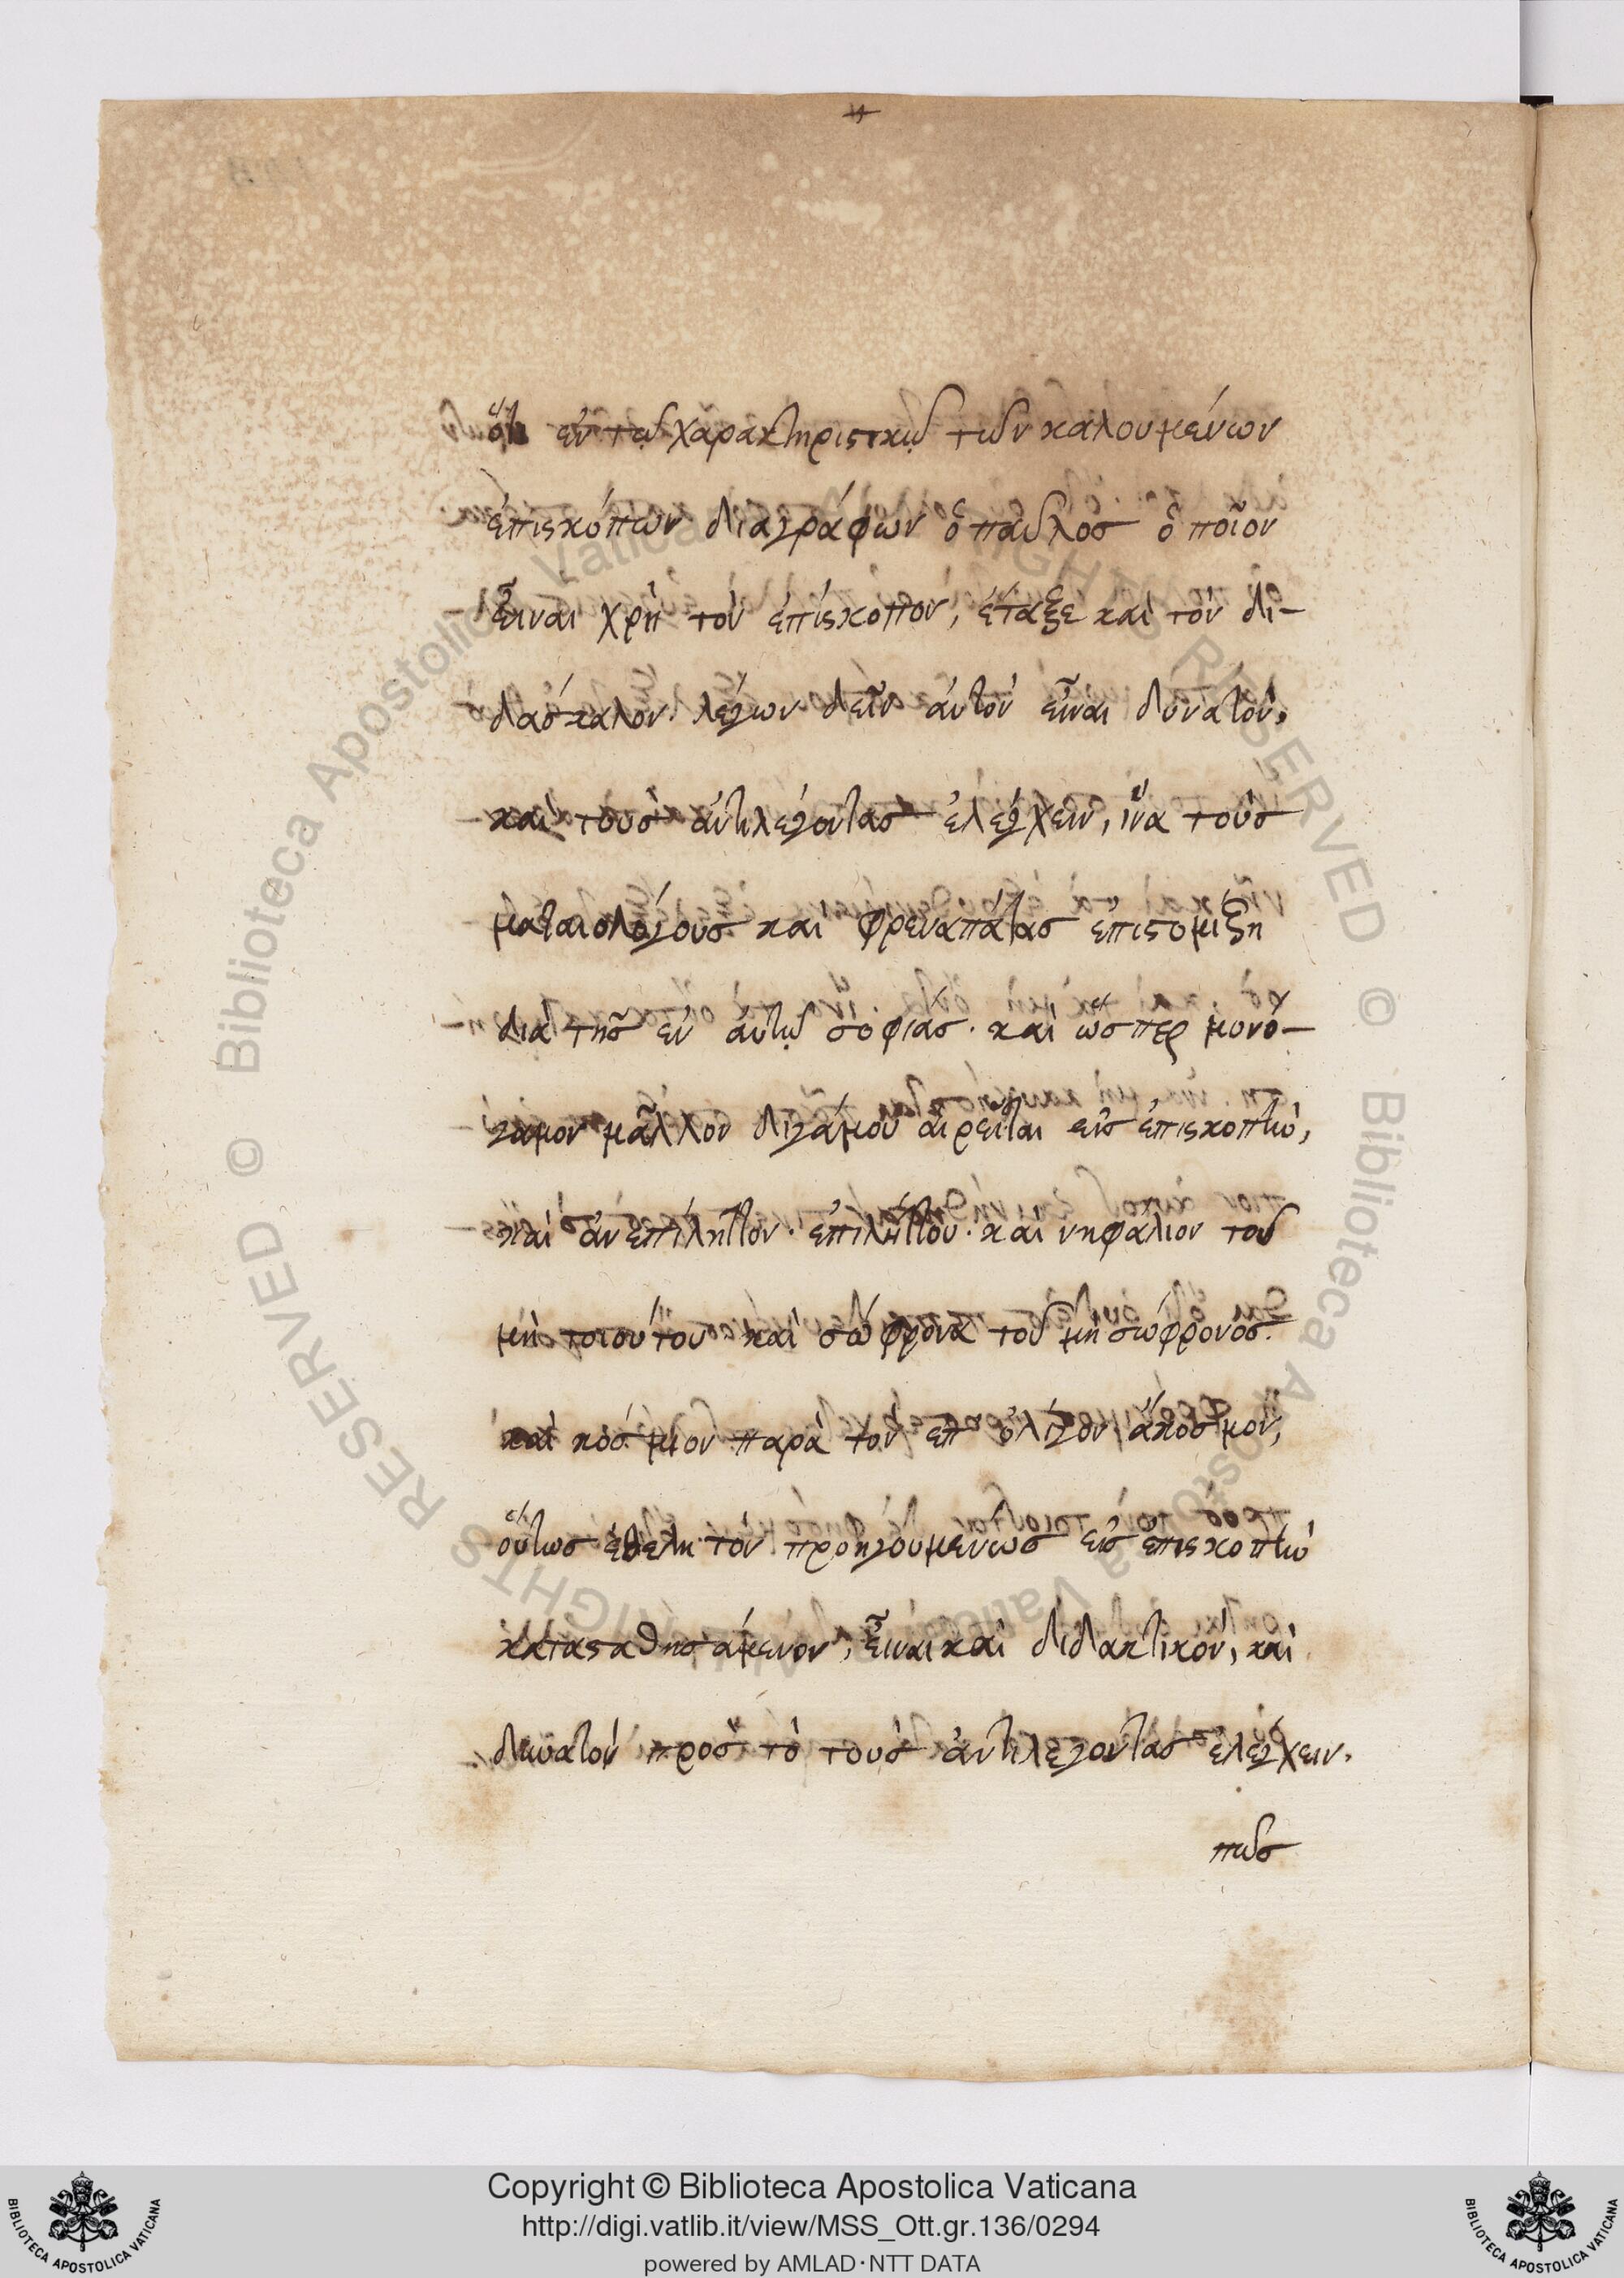 ὅτι ἐν τῷ χαρακτηριστικῷ τῶν καλουμένων
ἐπισκόπων διαγράφων ὁ παῦλος ὁποῖον
εἶναι χρὴ τὸν ἐπίσκοπον, ἔταξε καὶ τὸν δι-
δάσκαλον. λέγων δεῖν αὐτὸν εἶναι δυνατὸν,
καὶ τοὺς ἀντιλέγοντας ἐλέγχειν, ἵνα τοὺς
ματαιολόγους καὶ φρεναπάτας ἐπιστομίζη
διὰ τῆς ἐν αὐτῷ σοφίας. καὶ ὥσπερ μονό-
γαμον μᾶλλον διγάμου αἱρεῖται εἰς ἐπισκοπὴν,
καὶ ἀνεπίληπτον. ἐπιλήπτου. καὶ νηφάλιον τοῦ
μὴ τοιούτου καὶ σώφρονα τοῦ μὴ σώφρονος.
καὶ κόσμιον παρὰ τὸν ἐπ ὀλίγον ἄκοσμον,
οὕτως ἐθέλει τὸν προηγουμένως εἰς ἐπισκοπὴν
κατασταθησάμενον, εἶναι καὶ διδακτικὸν, καὶ
δυνατὸν πρὸς τὸ τοὺς ἀντιλέγοντας ἐλέγχειν.
πῶς
Copyright © Biblioteca Apostolica Vaticana
http://digi.vatlib.it/view/MSS_Ott.gr.136/0294
powered by AMLAD·NTT DATA
BIBLIOTECA APOSTOLICA VATICANA
BIBLIOTECA APOSTOLICA VATICANA